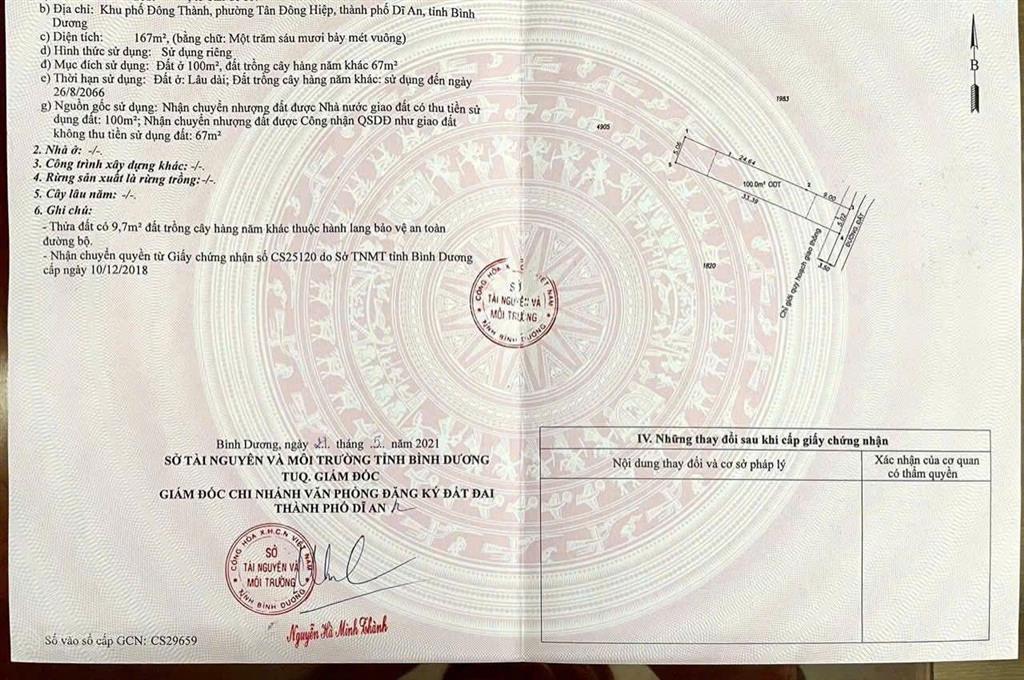 b) Địa chỉ: Khu phố Đông Thành, phường Tân Đông Hiệp, thành phố Dĩ An, tỉnh Bình
Dương
c) Diện tích: 167m², (bằng chữ: Một trăm sáu mươi bảy mét vuông)
d) Hình thức sử dụng: Sử dụng riêng
đ) Mục đích sử dụng: Đất ở 100m², đất trồng cây hàng năm khác 67m²
e) Thời hạn sử dụng: Đất ở: Lâu dài; Đất trồng cây hàng năm khác: sử dụng đến ngày
26/8/2066
g) Nguồn gốc sử dụng: Nhận chuyển nhượng đất được Nhà nước giao đất có thu tiền sử
dụng đất: 100m²; Nhận chuyển nhượng đất được Công nhận QSDĐ như giao đất
không thu tiền sử dụng đất: 67m²
2. Nhà ở: -/-.
3. Công trình xây dựng khác: -/-.
4. Rừng sản xuất là rừng trồng:-/-.
5. Cây lâu năm: -/-.
6. Ghi chú:
- Thửa đất có 9,7m² đất trồng cây hàng năm khác thuộc hành lang bảo vệ an toàn
đường bộ.
- Nhận chuyển quyền từ Giấy chứng nhận số CS25120 do Sở TNMT tỉnh Bình Dương
cấp ngày 10/12/2018
Bình Dương, ngày 21 tháng 5 năm 2021
SỞ TÀI NGUYÊN VÀ MÔI TRƯỜNG TỈNH BÌNH DƯƠNG
TUQ. GIÁM ĐỐC
GIÁM ĐỐC CHI NHÁNH VĂN PHÒNG ĐĂNG KÝ ĐẤT ĐAI
THÀNH PHỐ DĨ AN
CỘNG HÒA X.H.C.N VIỆT NAM
SỞ
TÀI NGUYÊN VÀ
MÔI TRƯỜNG
TỈNH BÌNH DƯƠNG
Nguyễn Hà Minh Thành
Số vào sổ cấp GCN: CS29659
SỞ
TÀI NGUYÊN VÀ
MÔI TRƯỜNG
TỈNH BÌNH DƯƠNG
B
1983
4905
1
5.06
5
1
24.64
100.0m² ODT
33.39
2
9.00
3
5.02
4
3.50
ĐƯỜNG ĐẤT
Chỉ giới quy hoạch giao thông
1820
IV. Những thay đổi sau khi cấp giấy chứng nhận
Nội dung thay đổi và cơ sở pháp lý
Xác nhận của cơ quan
có thẩm quyền